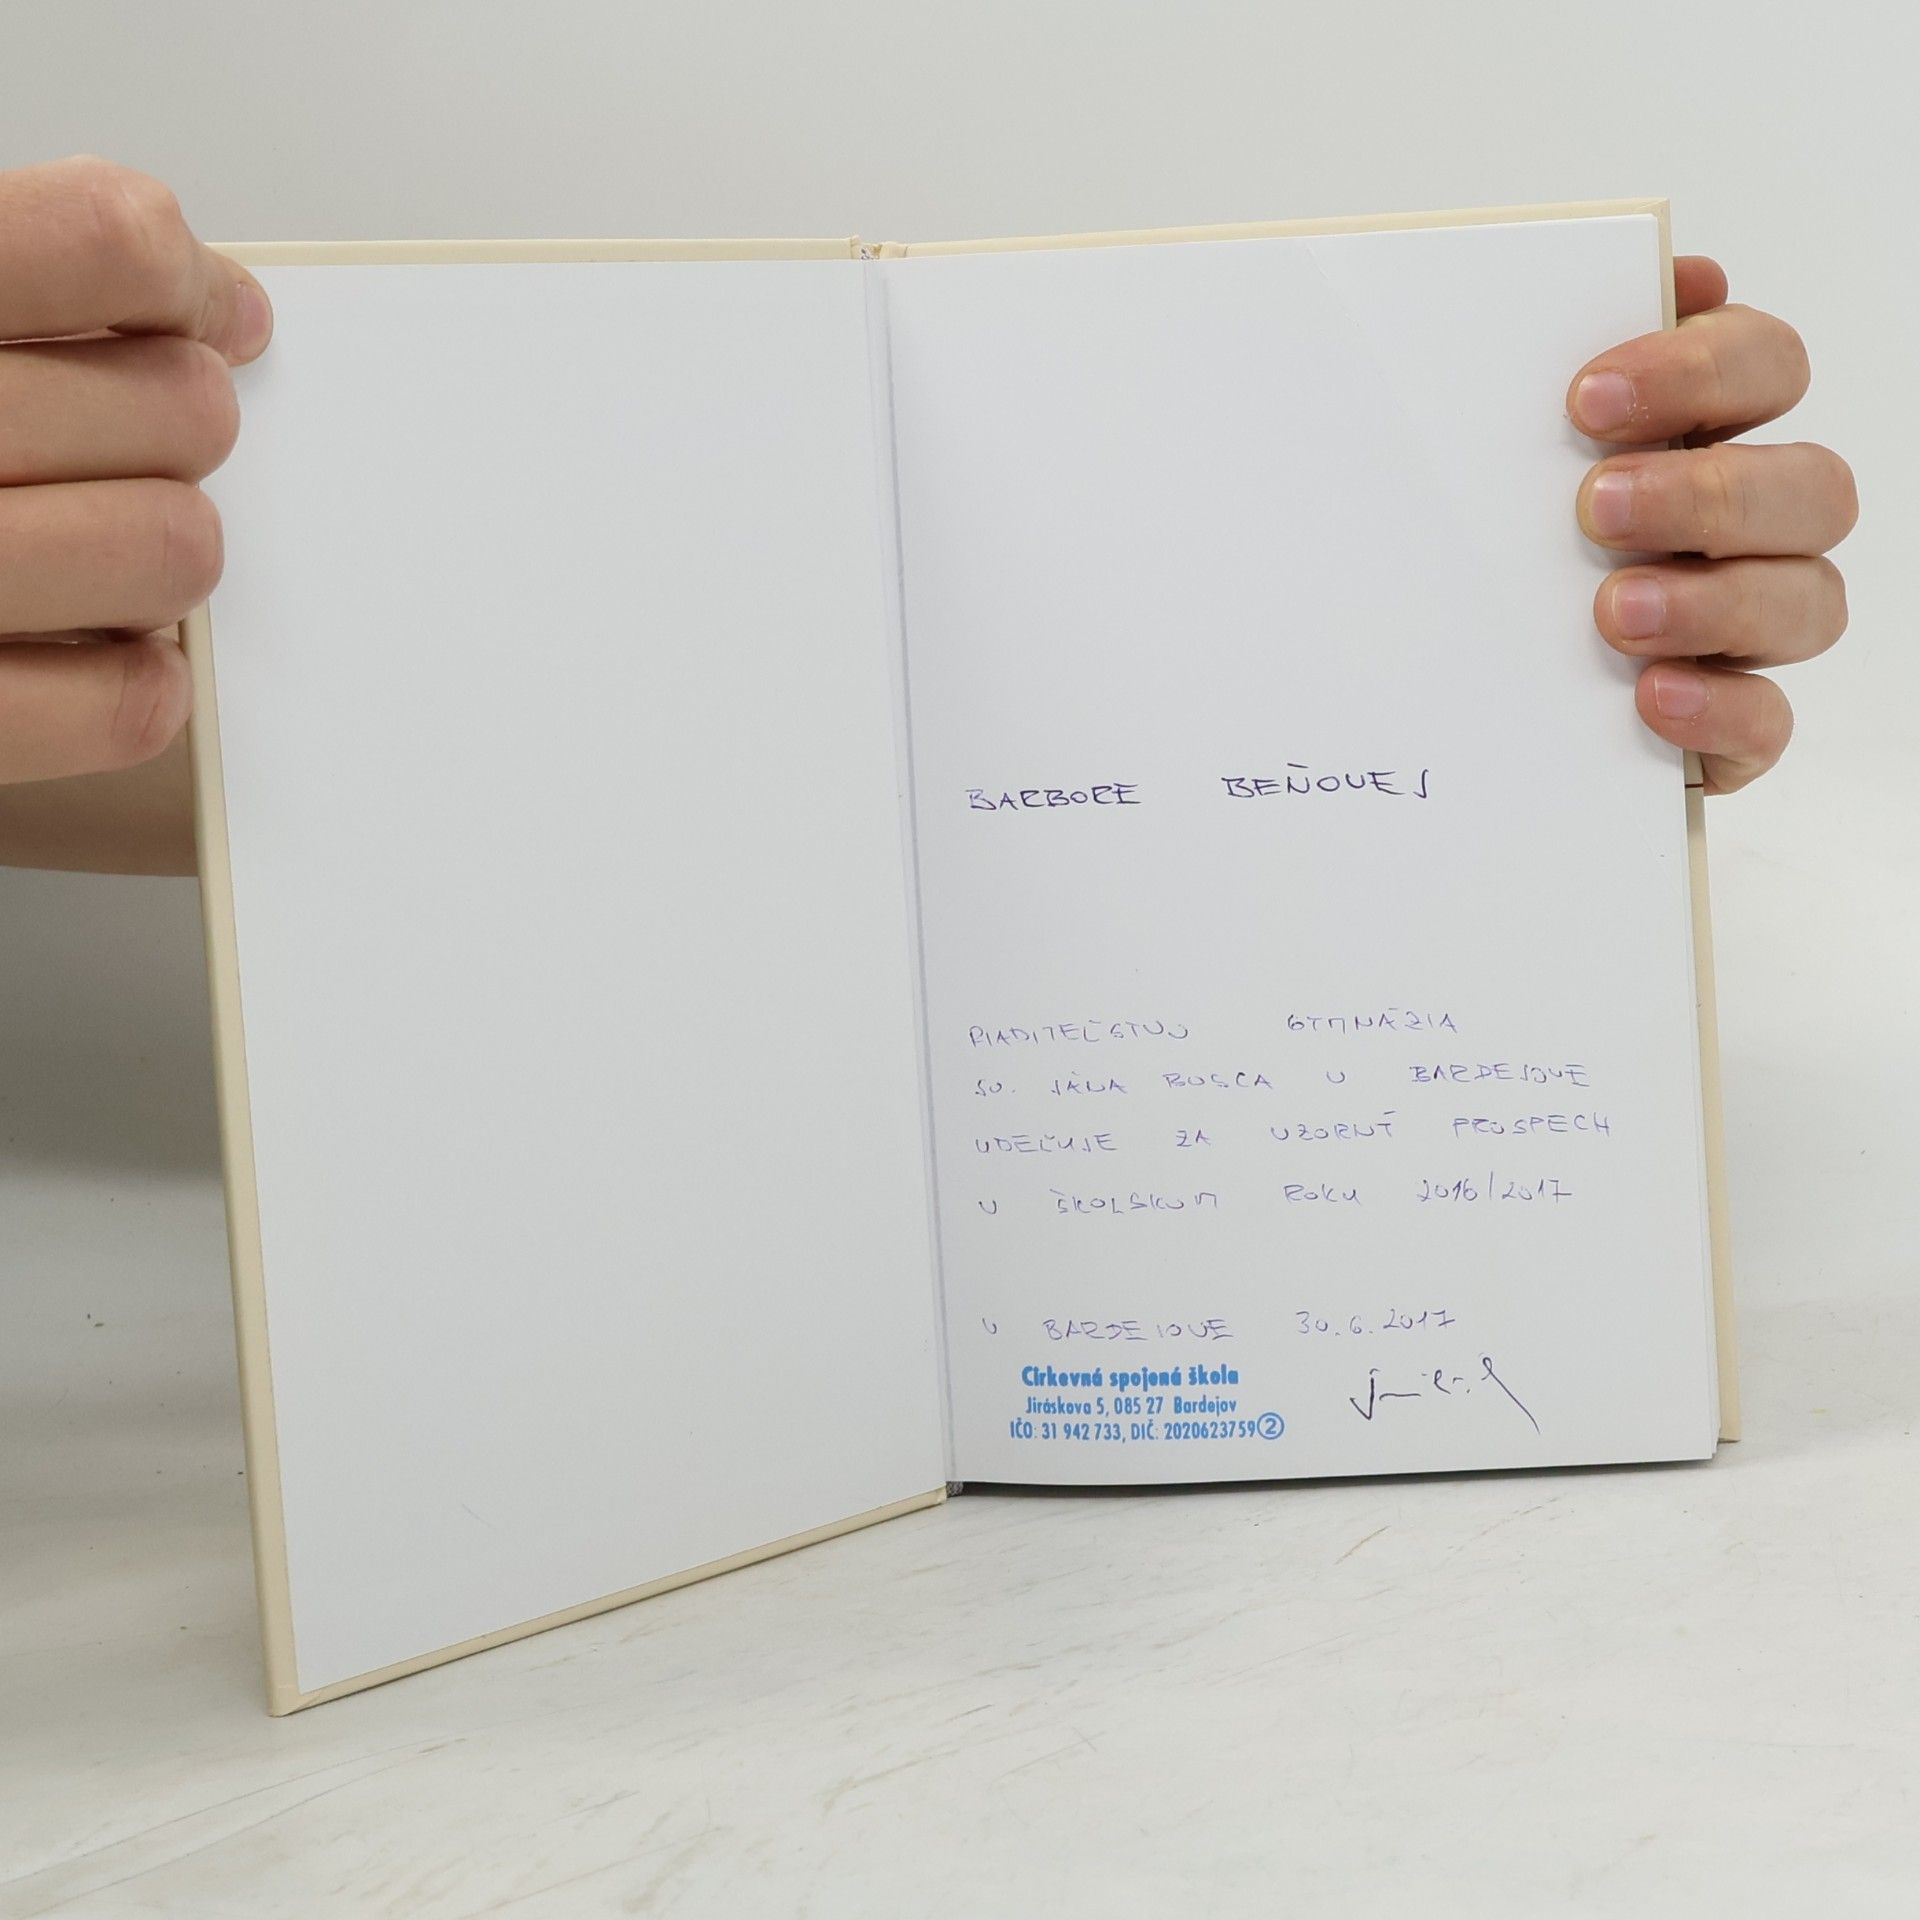 BARBORE BEŇOVEJ
RIADITEĽSTVO GYMNÁZIA
SV. JÁNA BOSCA V BARDEJOVE
UDEĽUJE ZA VZORNÝ PROSPECH
V ŠKOLSKOM ROKU 2016/2017
V BARDEJOVE 30.6.2017
Cirkevná spojená škola
Jiráskova 5, 085 27 Bardejov
IČO: 31 942 733, DIČ: 2020623759 ②